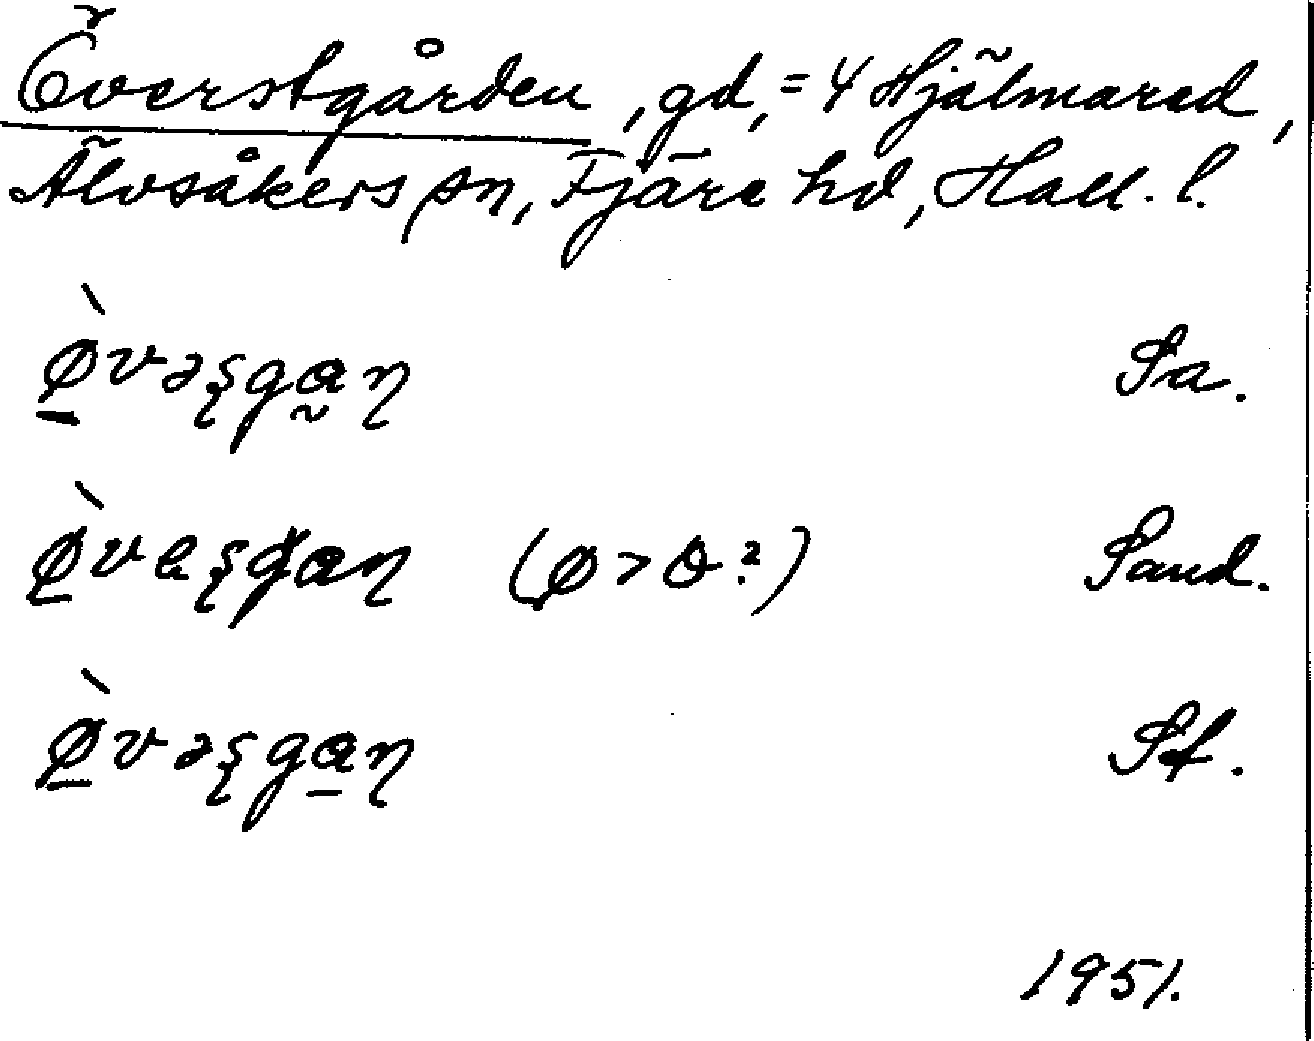 Överstgården, gd, = 4 Hjälmared,
Älvsåkers sn, Fjäre hd, Hall. l.
ø̠̀vəʂga̰ɳ Sa.
Sand.
ø̠̀vəʂga̠ɳ Sf.
1951.